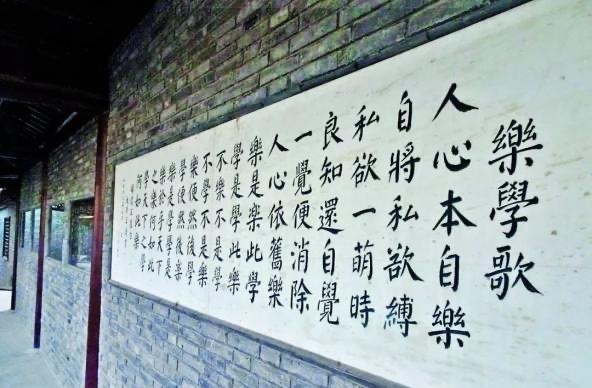 樂學歌
人心本自樂
自將私欲縛
私欲一萌時
良知還自覺
一覺便消除
人心依舊樂
樂是樂此學
學是學此樂
不樂不是學
不學不是樂
樂便然後學
學便然後樂
樂是學學是
樂於乎天下
之樂何如此
學天下之學
何如此樂